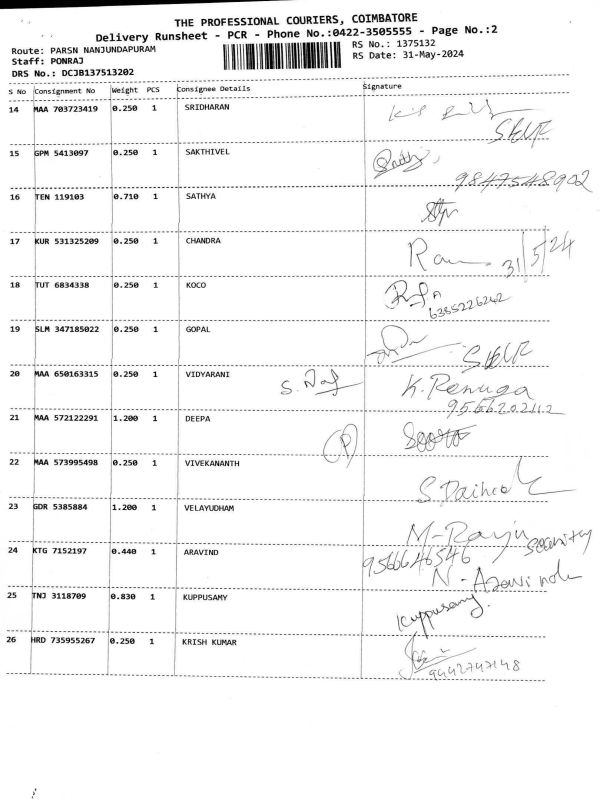 THE PROFESSIONAL COURIERS, COIMBATORE
Delivery Runsheet - PCR - Phone No.:0422-3505555 - Page No.:2
Route: PARSN NANJUNDAPURAM
RS No.: 1375132
Staff: PONRAJ
RS Date: 31-May-2024
DRS No.: DCJB137513202
S No Consignment No Weight PCS Consignee Details Signature
14 MAA 703723419 0.250 1 SRIDHARAN
15 GPM 5413097 0.250 1 SAKTHIVEL
9847548902
16 TEN 119103 0.710 1 SATHYA
17 KUR 531325209 0.250 1 CHANDRA
31/5/24
18 TUT 6834338 0.250 1 KOCO
6385226242
19 SLM 347185022 0.250 1 GOPAL
20 MAA 650163315 0.250 1 VIDYARANI K. Renuga
9566202112
21 MAA 572122291 1.200 1 DEEPA
P
22 MAA 573995498 0.250 1 VIVEKANANTH
23 GDR 5385884 1.200 1 VELAYUDHAM
M-Raju Security
24 KTG 7152197 0.440 1 ARAVIND 9566646546
N - Aravindh
25 TNJ 3118709 0.830 1 KUPPUSAMY Kuppusamy
26 HRD 735955267 0.250 1 KRISH KUMAR
9442747148